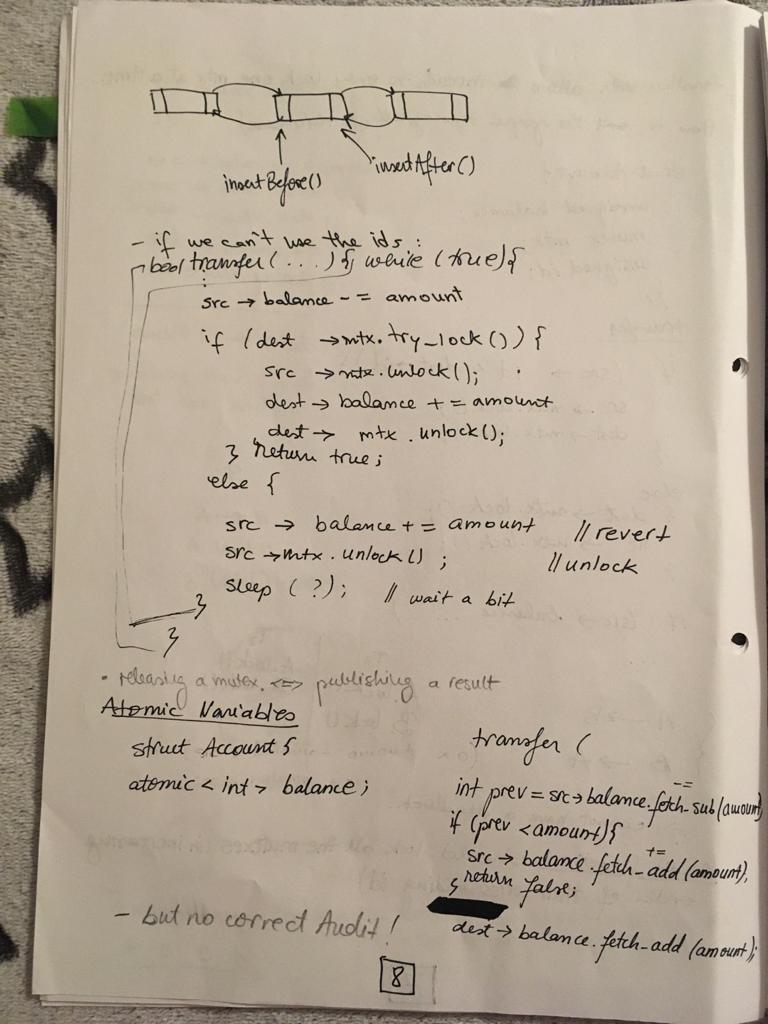 insertBefore()
insertAfter()
- if we can't use the ids :
bool transfer(...) { while (true) {
:
src → balance -= amount
if (dest → mtx.try_lock()) {
src → mtx.unlock();
dest → balance += amount
dest → mtx.unlock();
} return true;
else {
src → balance += amount // revert
src → mtx.unlock() ; // unlock
sleep (?); // wait a bit
}
}
• releasing a mutex. <=> publishing a result
Atomic Variables
struct Account {
atomic < int > balance ;
transfer (
-=
int prev = src → balance.fetch_sub(amount)
if (prev < amount) {
+=
src → balance.fetch_add(amount),
} return false;
dest → balance.fetch_add (amount);
- but no correct Audit !
8